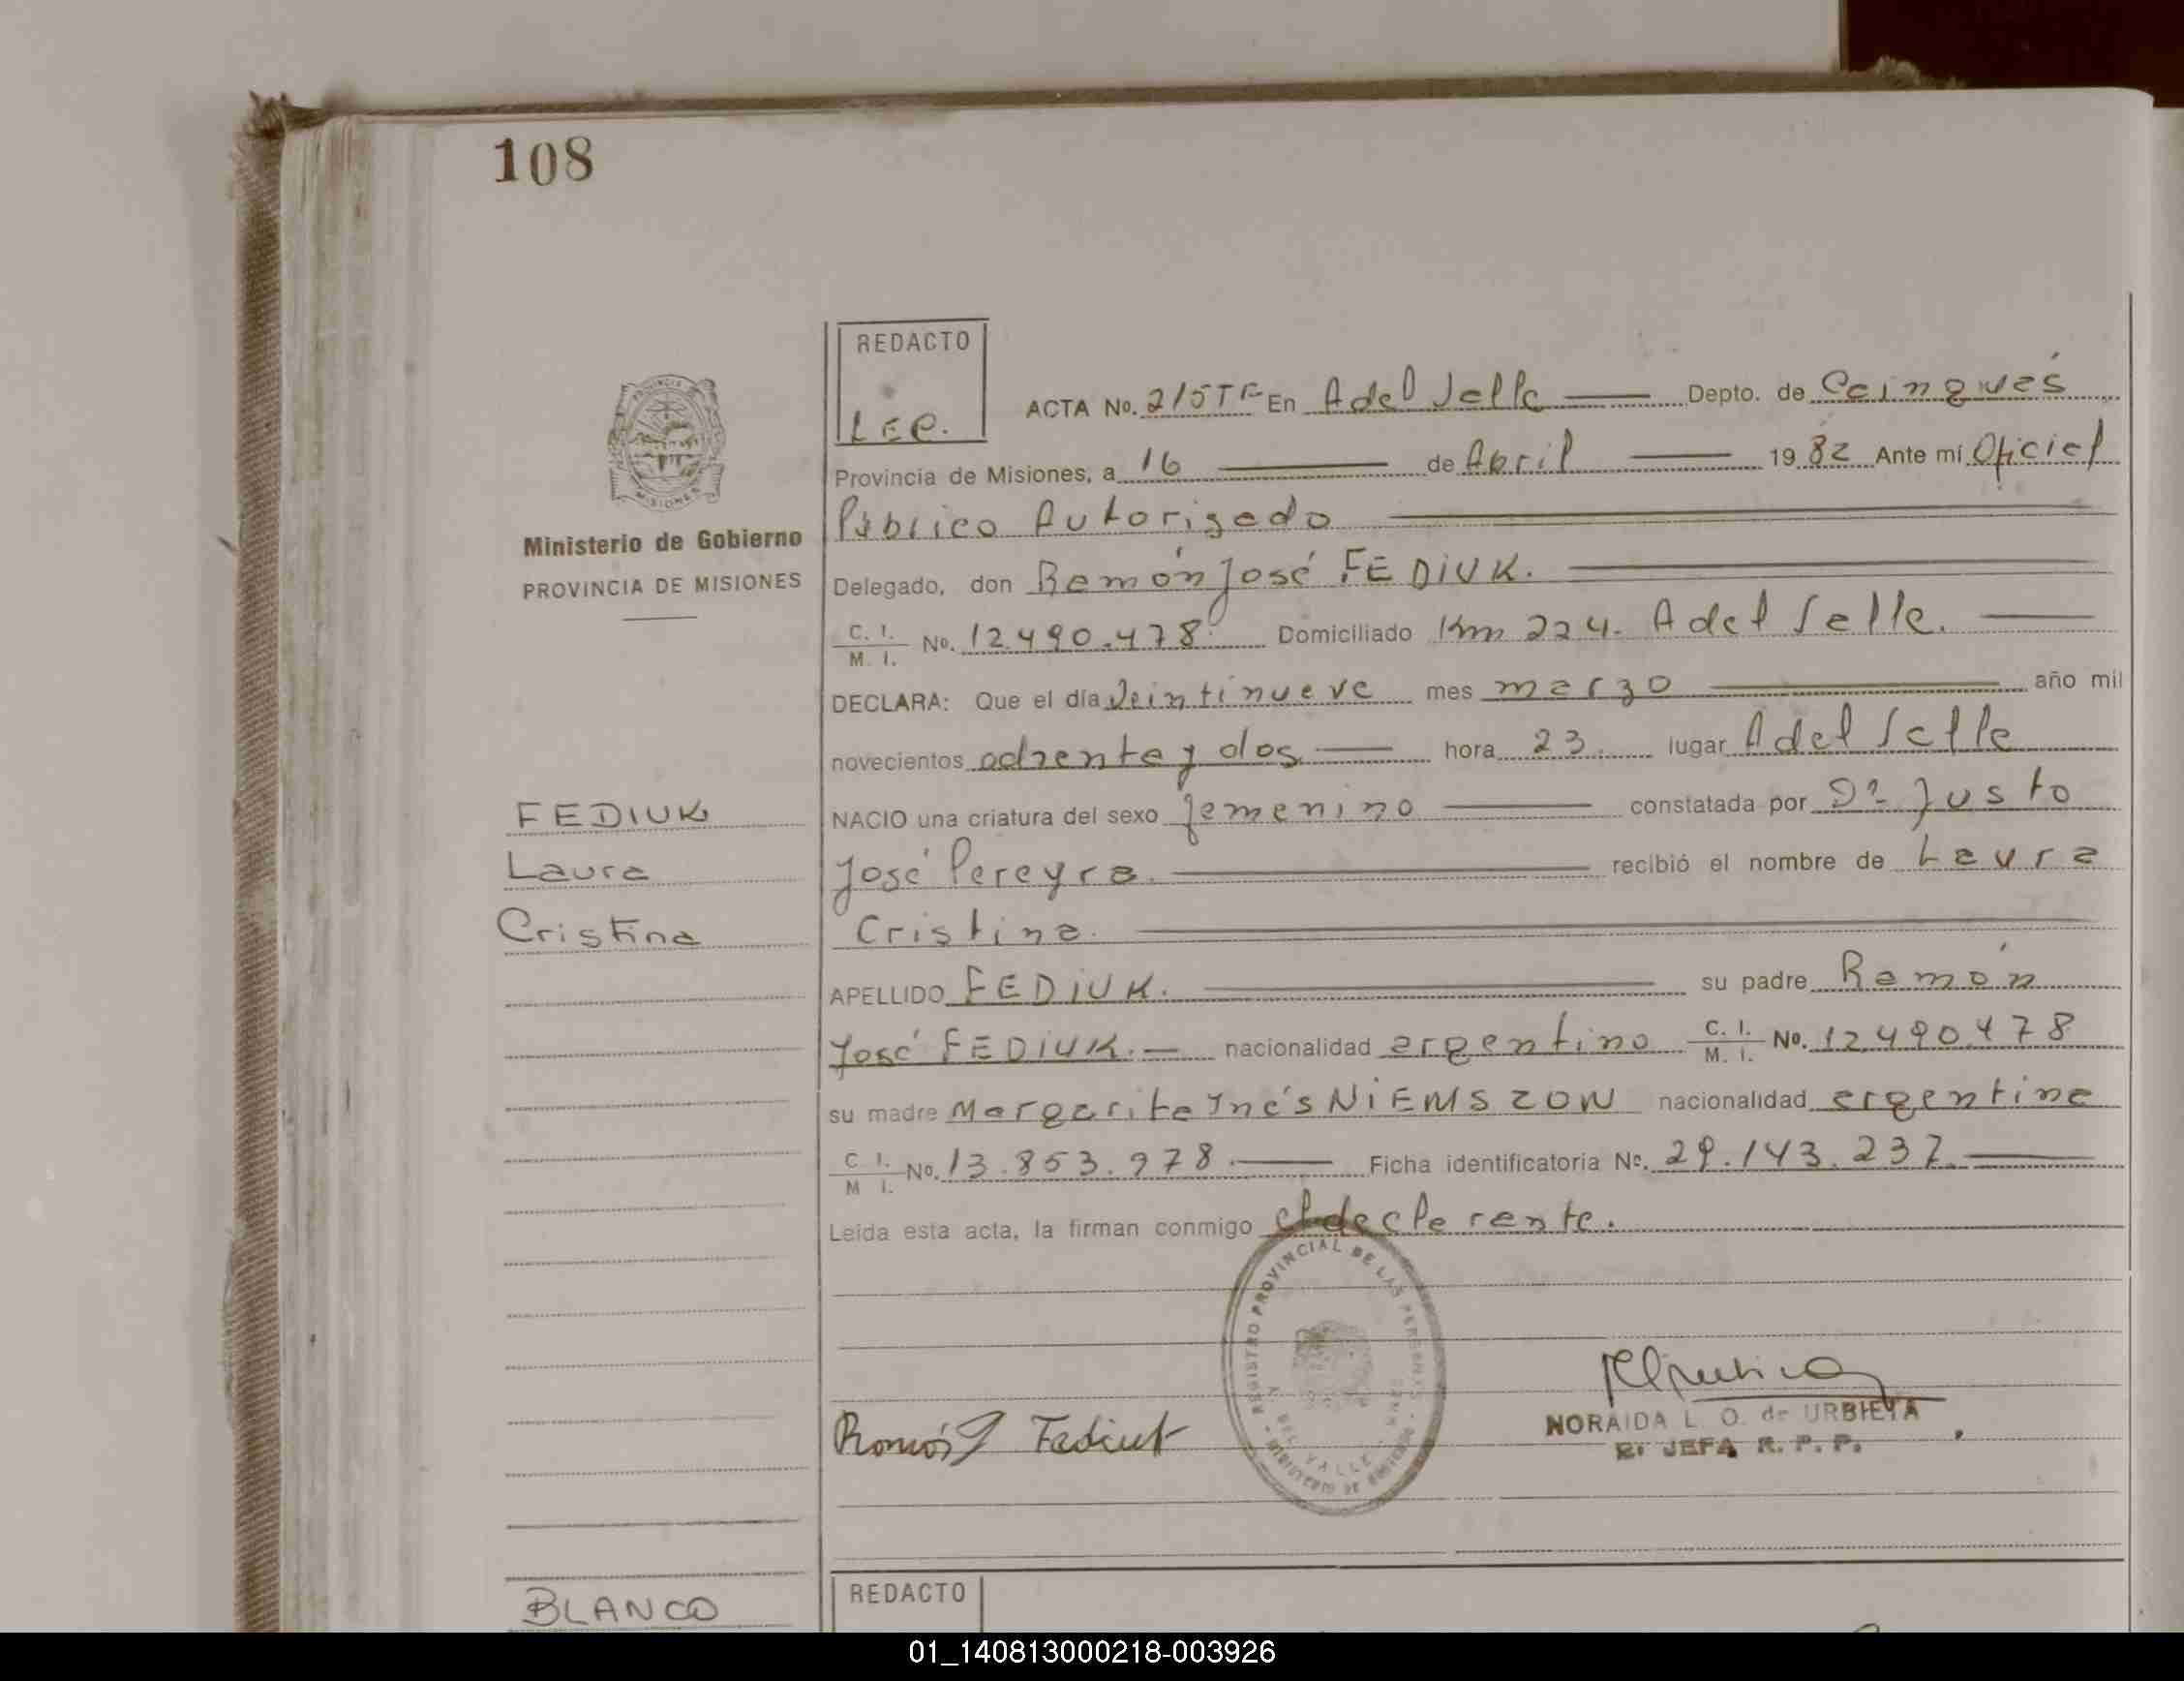 108
REDACTO
LEP.
ACTA No. 215 TF En A del Valle Depto. de Cainguás
Provincia de Misiones, a 16 de Abril 1982 Ante mí Oficial
Ministerio de Gobierno
PROVINCIA DE MISIONES
Público Autorizado
Delegado, don Ramón José FEDIUK.
C. I. M. I. No. 12.490.478 Domiciliado Km 224. A del Valle.
DECLARA: Que el día veintinueve mes marzo año mil
novecientos ochenta y dos hora 23 lugar A del Valle
FEDIUK
Laura
Cristina
NACIO una criatura del sexo femenino constatada por Dr. Justo
José Pereyra. recibió el nombre de Laura
Cristina.
APELLIDO FEDIUK. su padre Ramón
José FEDIUK. nacionalidad argentino C. I. M. I. No. 12.490.478
su madre Margarita Inés NIEMSZON nacionalidad argentina
C. I. M. I. No. 13.853.978. Ficha identificatoria No. 29.143.237.
Leída esta acta, la firman conmigo el declarante.
REGISTRO PROVINCIAL DE LAS PERSONAS
A. DEL VALLE
Ramón J Fediuk
NORAIDA L. O. de URBIETA
JEFA R. P. P.
BLANCO
REDACTO
01_140813000218-003926